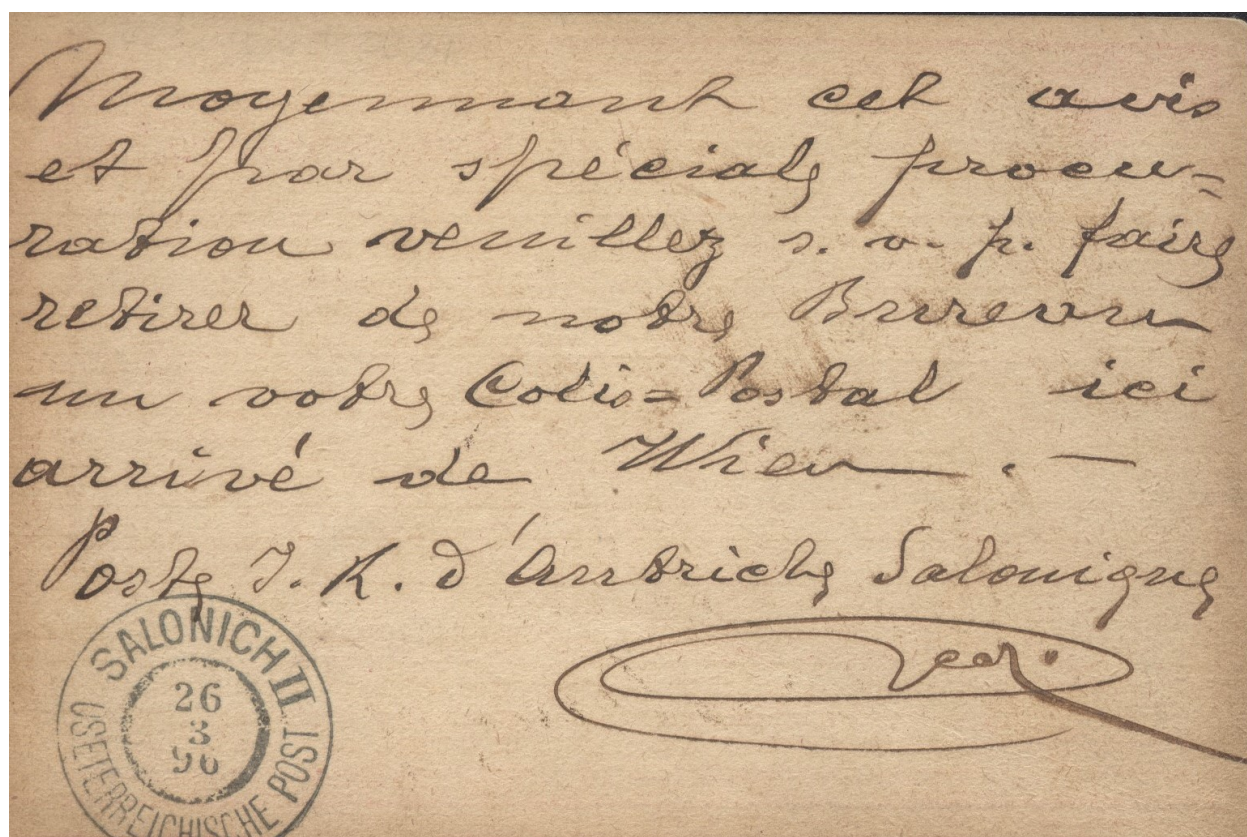 Moyennant cet avis
et par spéciale procu=
ration veuillez s. v. p. faire
retirer de notre Bureau
un votre Colis=Postal ici
arrivé de Wien . —
Poste I. R. d'Autriche Salonique
SALONICH II
26
3
96
OSETERREICHISCHE POST